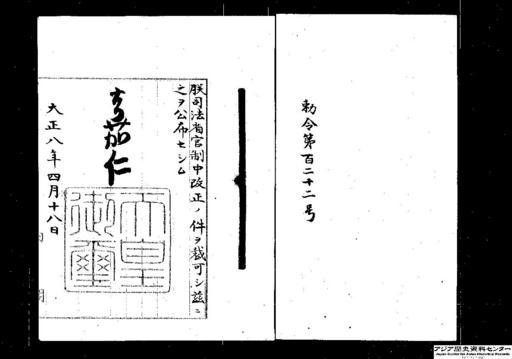 勅令第百二十二号
朕司法省官制中改正ノ件ヲ裁可シ茲ニ
之ヲ公布セシム
嘉仁
天皇御璽
大正八年四月十八日
内閣
アジア歴史資料センター
Japan Center for Asian Historical Records